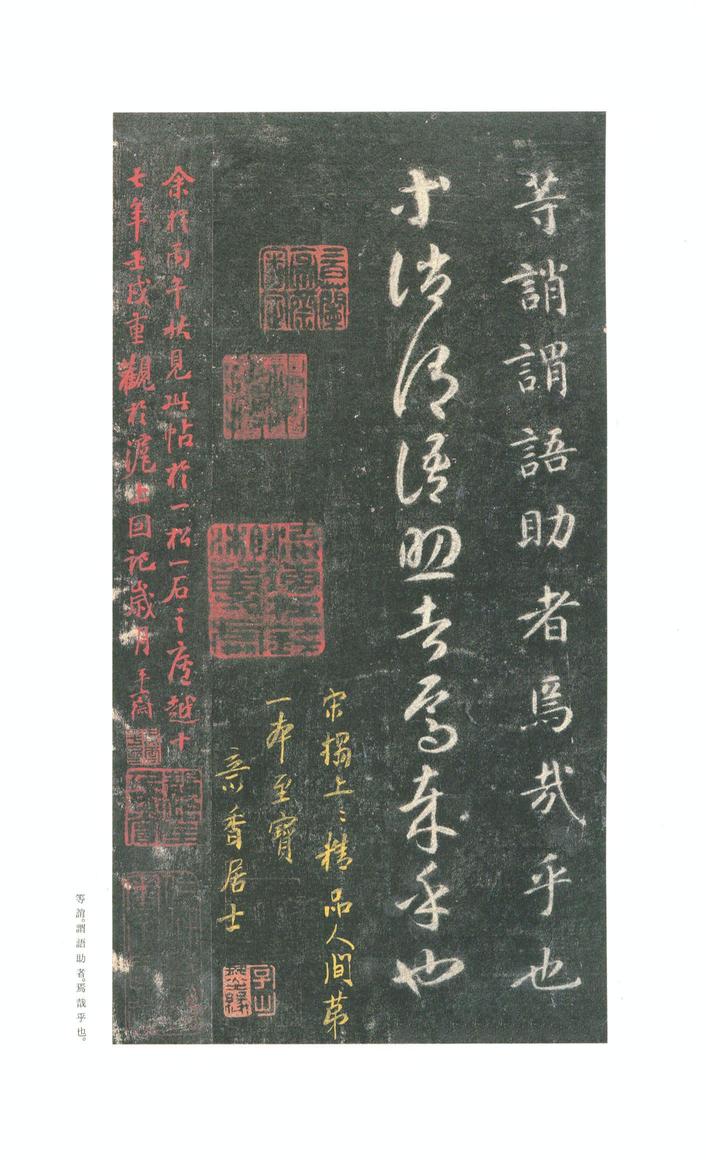 等誚謂語助者焉哉乎也
等誚謂語助者焉哉乎也
宋搨上〻精品人間第
一本至寶
香居士
余於丙午秋見此帖於一松一石之廬越十
七年壬戌重觀於滬上因記歲月平齋
等誚。謂語助者。焉哉乎也。